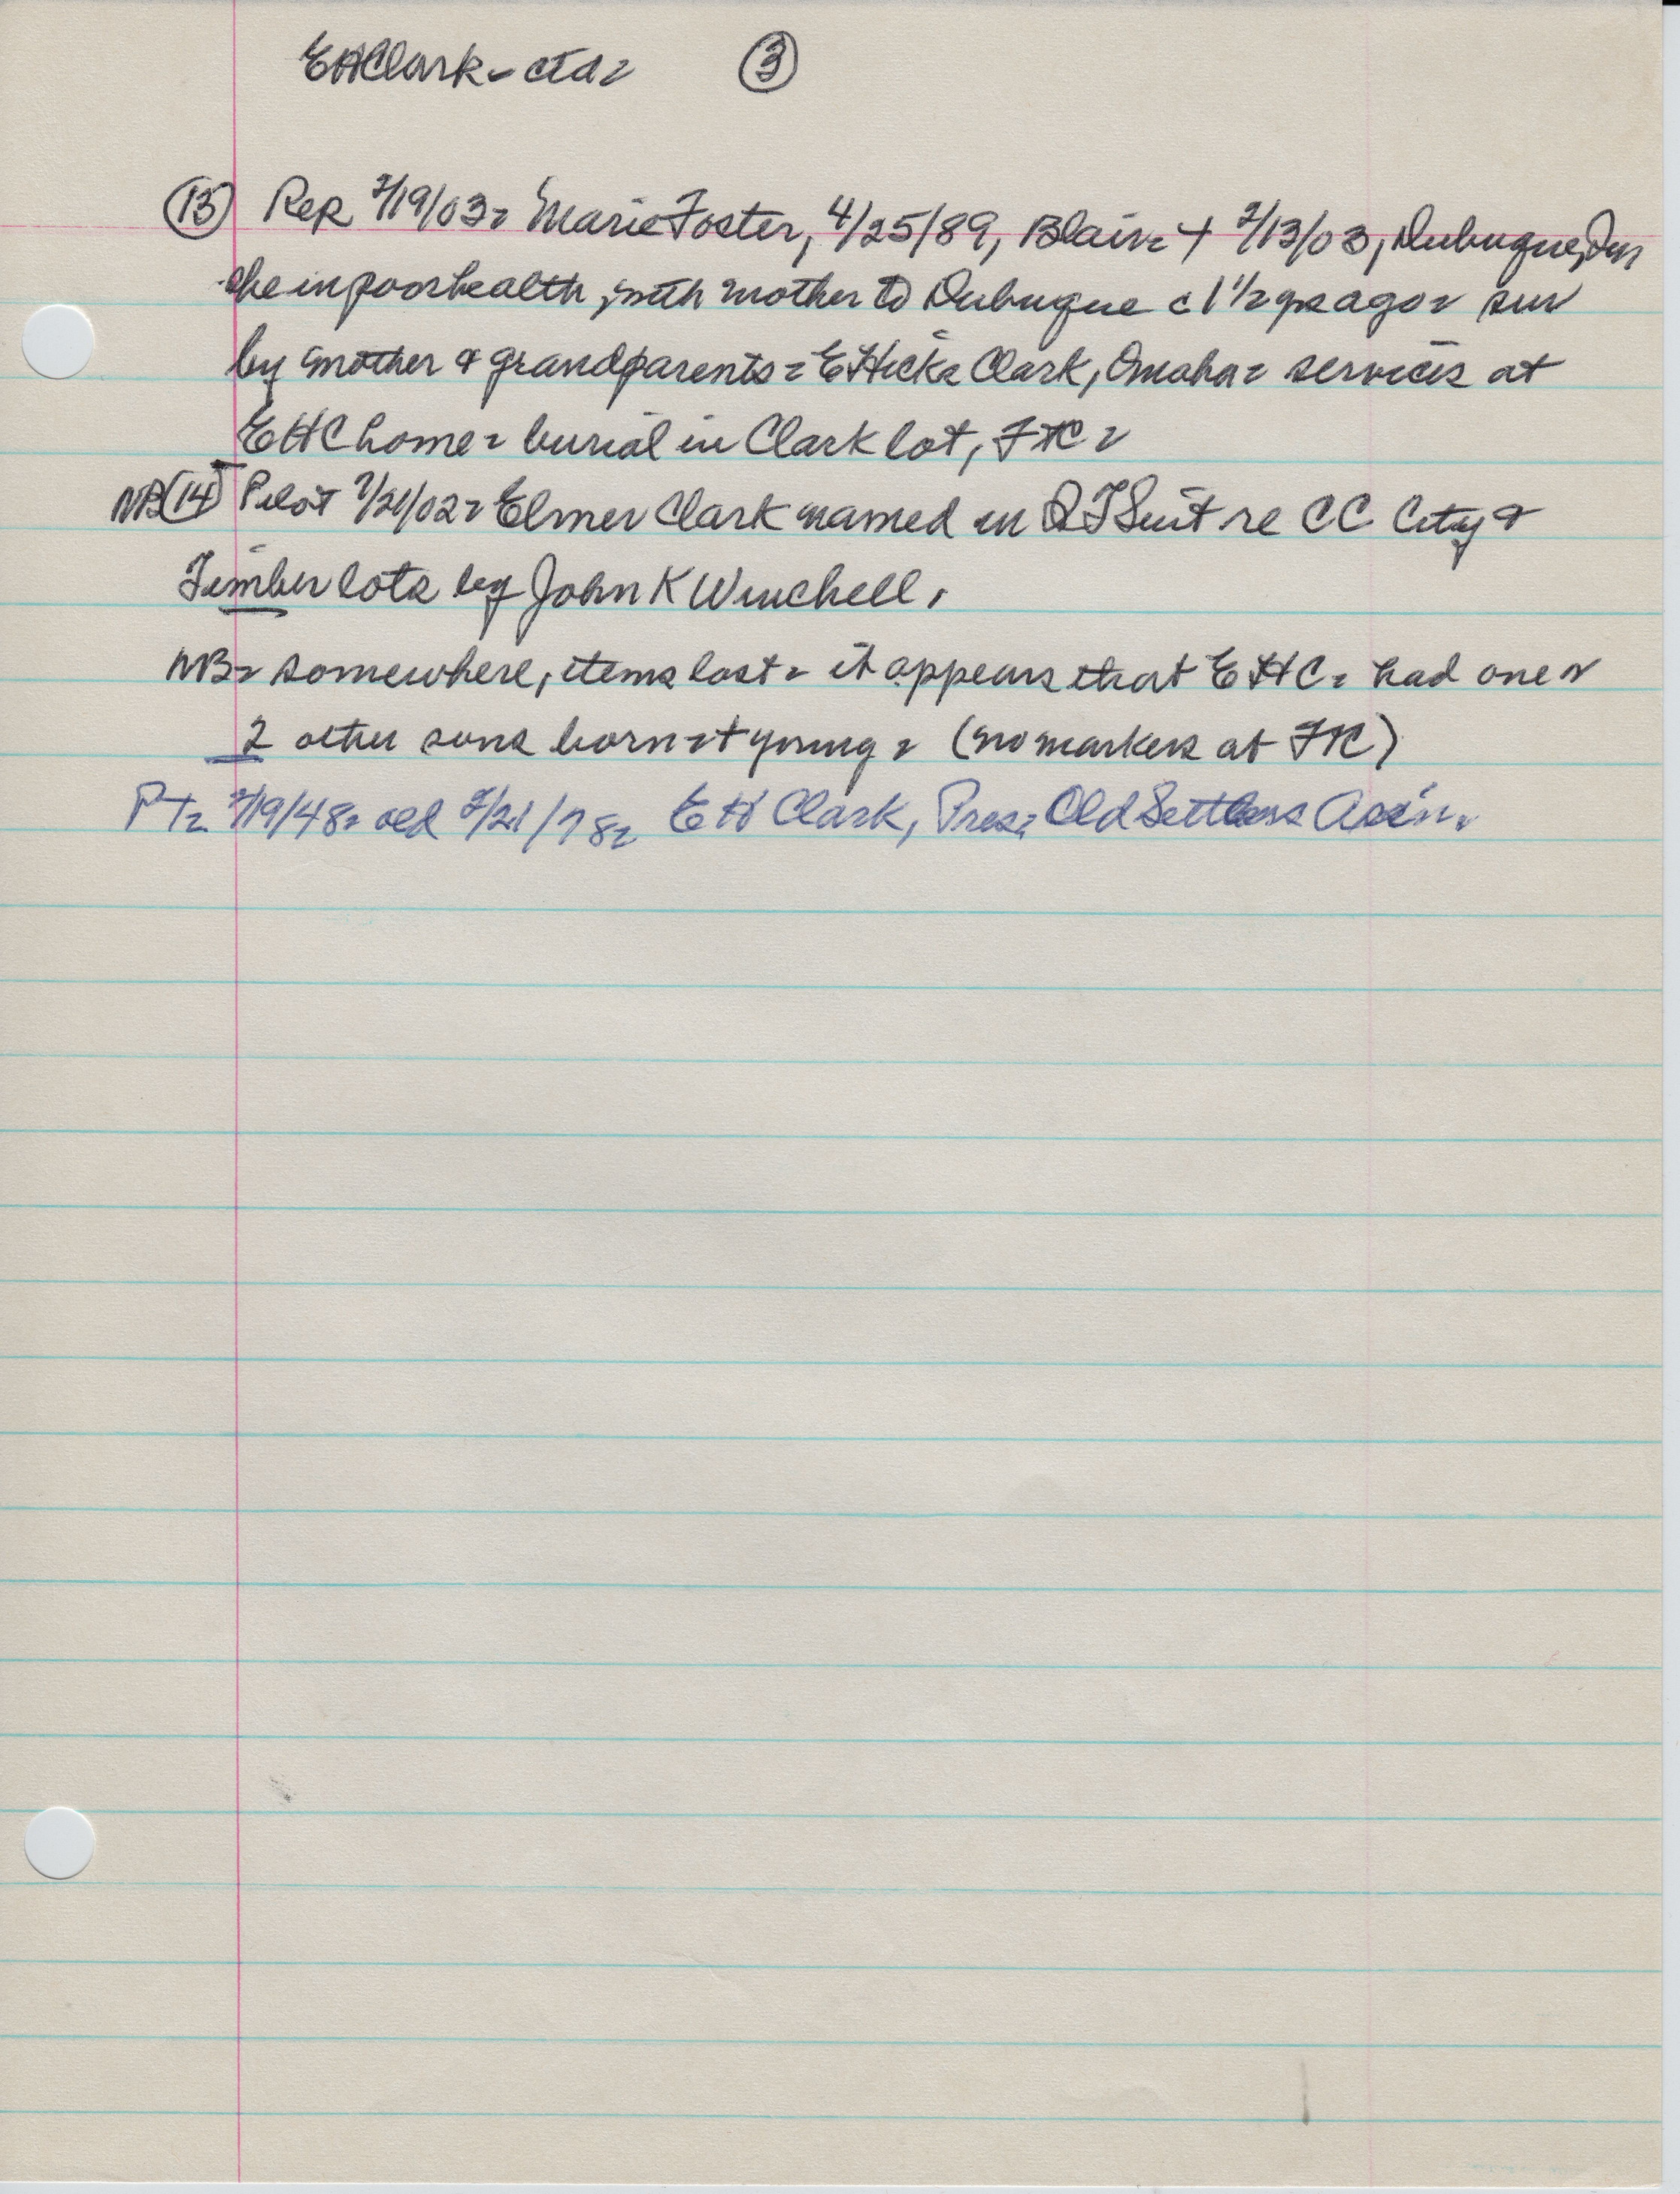 EHClark - ctd= ③
⑬ Rep 2/19/03= Marie Foster, 4/25/89, Blair= + 2/13/03, Dubuque,
she in poor health, with mother to Dubuque c 1 1/2 yrs ago= sur
by mother & grandparents= E Hicks Clark, Omaha= services at
EHC home= burial in Clark lot, FtC=
NB ⑭ Pilot /21/02= Elmer Clark named in QT Suit re CC City &
Timber lots by John K Winchell.
NB= somewhere, items lost= it appears that EHC= had one or
2 other sons born + young= (no markers at FtC)
PT= 2/19/48= old 2/21/78= EH Clark, Pres= Old Settlers Ass'n.